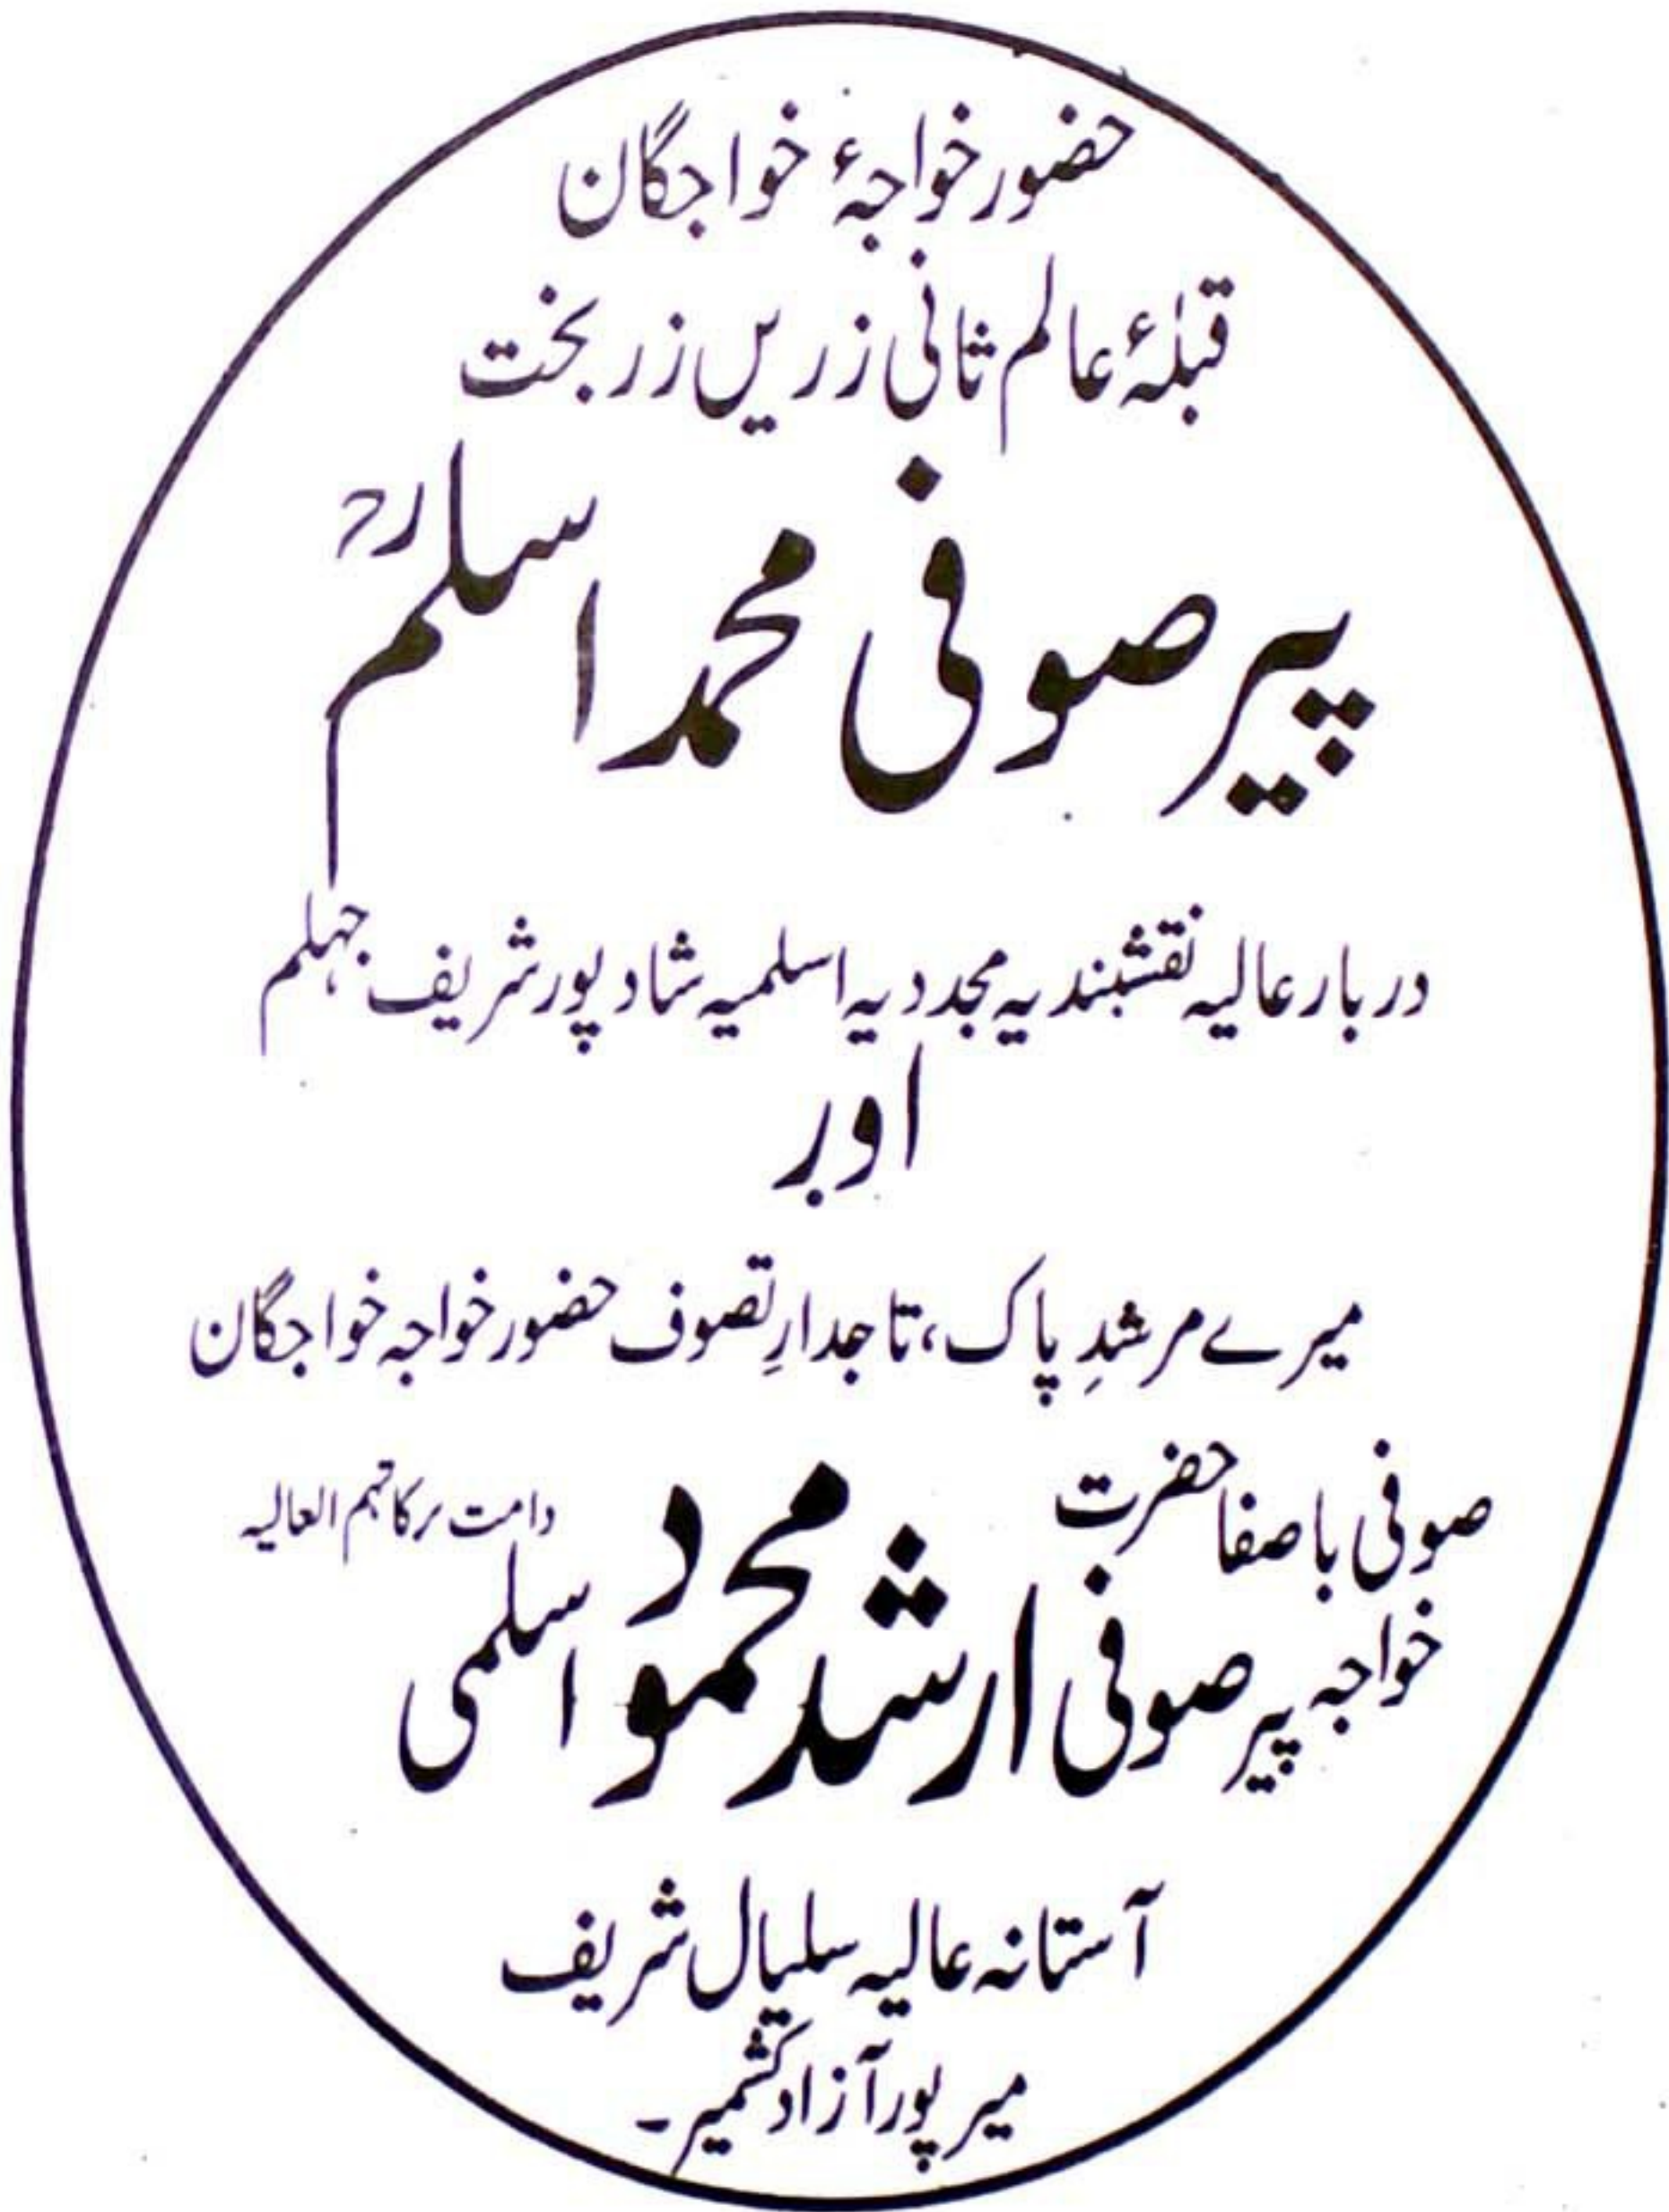 حضور خواجۂ خواجگان
قبلۂ عالم ثانی زریں زر بخت
پیر صوفی محمد اسلم رح
دربار عالیہ نقشبندیہ مجددیہ اسلمیہ شاد پور شریف جہلم
اور
میرے مرشدِ پاک، تاجدارِ تصوف حضور خواجہ خواجگان
صوفی باصفا حضرت
خواجہ پیر صوفی ارشد محمود اسلمی دامت برکاتہم العالیہ
آستانہ عالیہ سلیال شریف
میر پور آزاد کشمیر۔